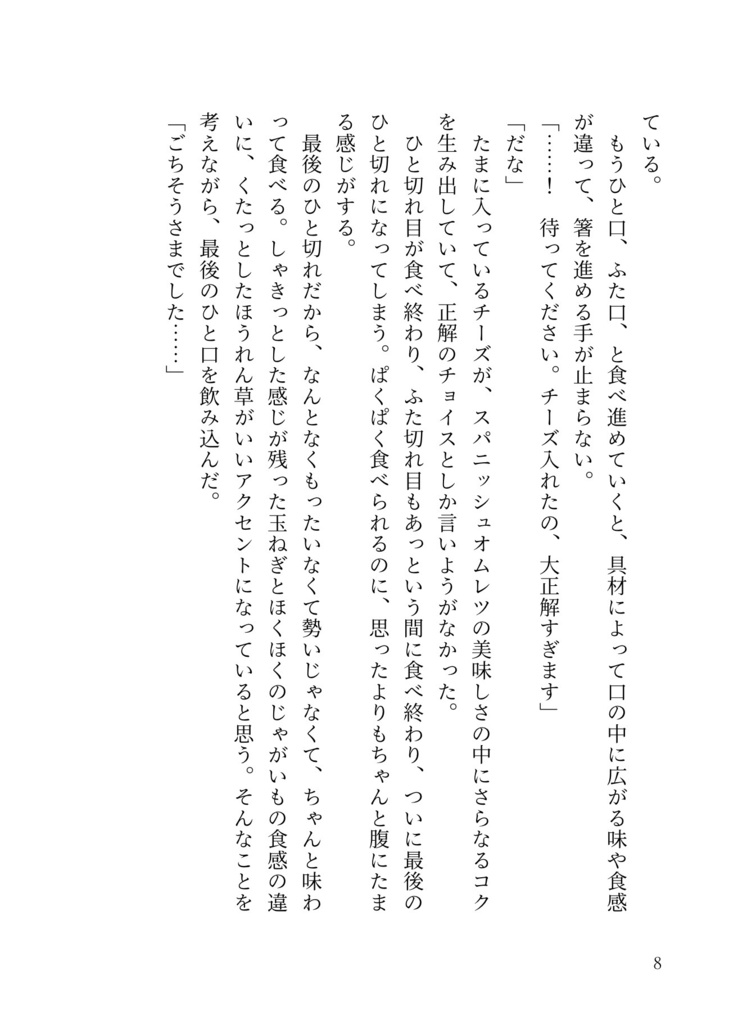 ている。
　もうひと口、ふた口、と食べ進めていくと、具材によって口の中に広がる味や食感
が違って、箸を進める手が止まらない。
「……！　待ってください。チーズ入れたの、大正解すぎます」
「だな」
　たまに入っているチーズが、スパニッシュオムレツの美味しさの中にさらなるコク
を生み出していて、正解のチョイスとしか言いようがなかった。
　ひと切れ目が食べ終わり、ふた切れ目もあっという間に食べ終わり、ついに最後の
ひと切れになってしまう。ぱくぱく食べられるのに、思ったよりもちゃんと腹にたま
る感じがする。
　最後のひと切れだから、なんとなくもったいなくて勢いじゃなくて、ちゃんと味わ
って食べる。しゃきっとした感じが残った玉ねぎとほくほくのじゃがいもの食感の違
いに、くたっとしたほうれん草がいいアクセントになっていると思う。そんなことを
考えながら、最後のひと口を飲み込んだ。
「ごちそうさまでした……」
8